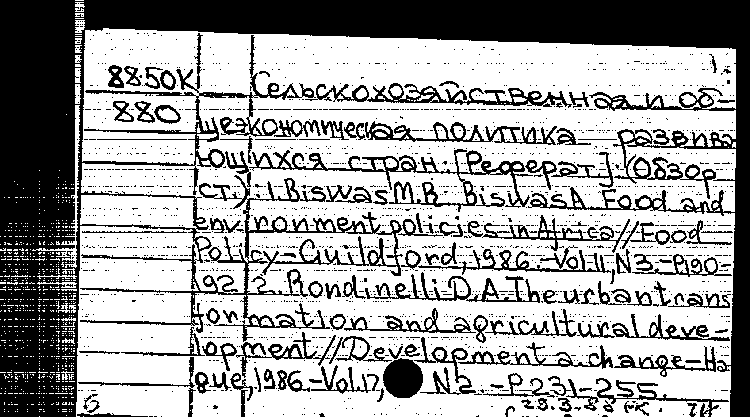 8850К Сельскохозяйственная и об-
880 щеэкономическая политика развива
ющихся стран: [Реферат]. (Обзор
ст.): 1. Biswas M.R., Biswas A. Food and
environment policies in Africa // Food
Policy - Guildford, 1986. - Vol. 11, N3. - P.190-
192 2. Rondinelli D.A. The urban trans
formation and agricultural deve-
lopment // Development a. change - Ha
gue, 1986. - Vol. 17, N2. - P. 231-255.